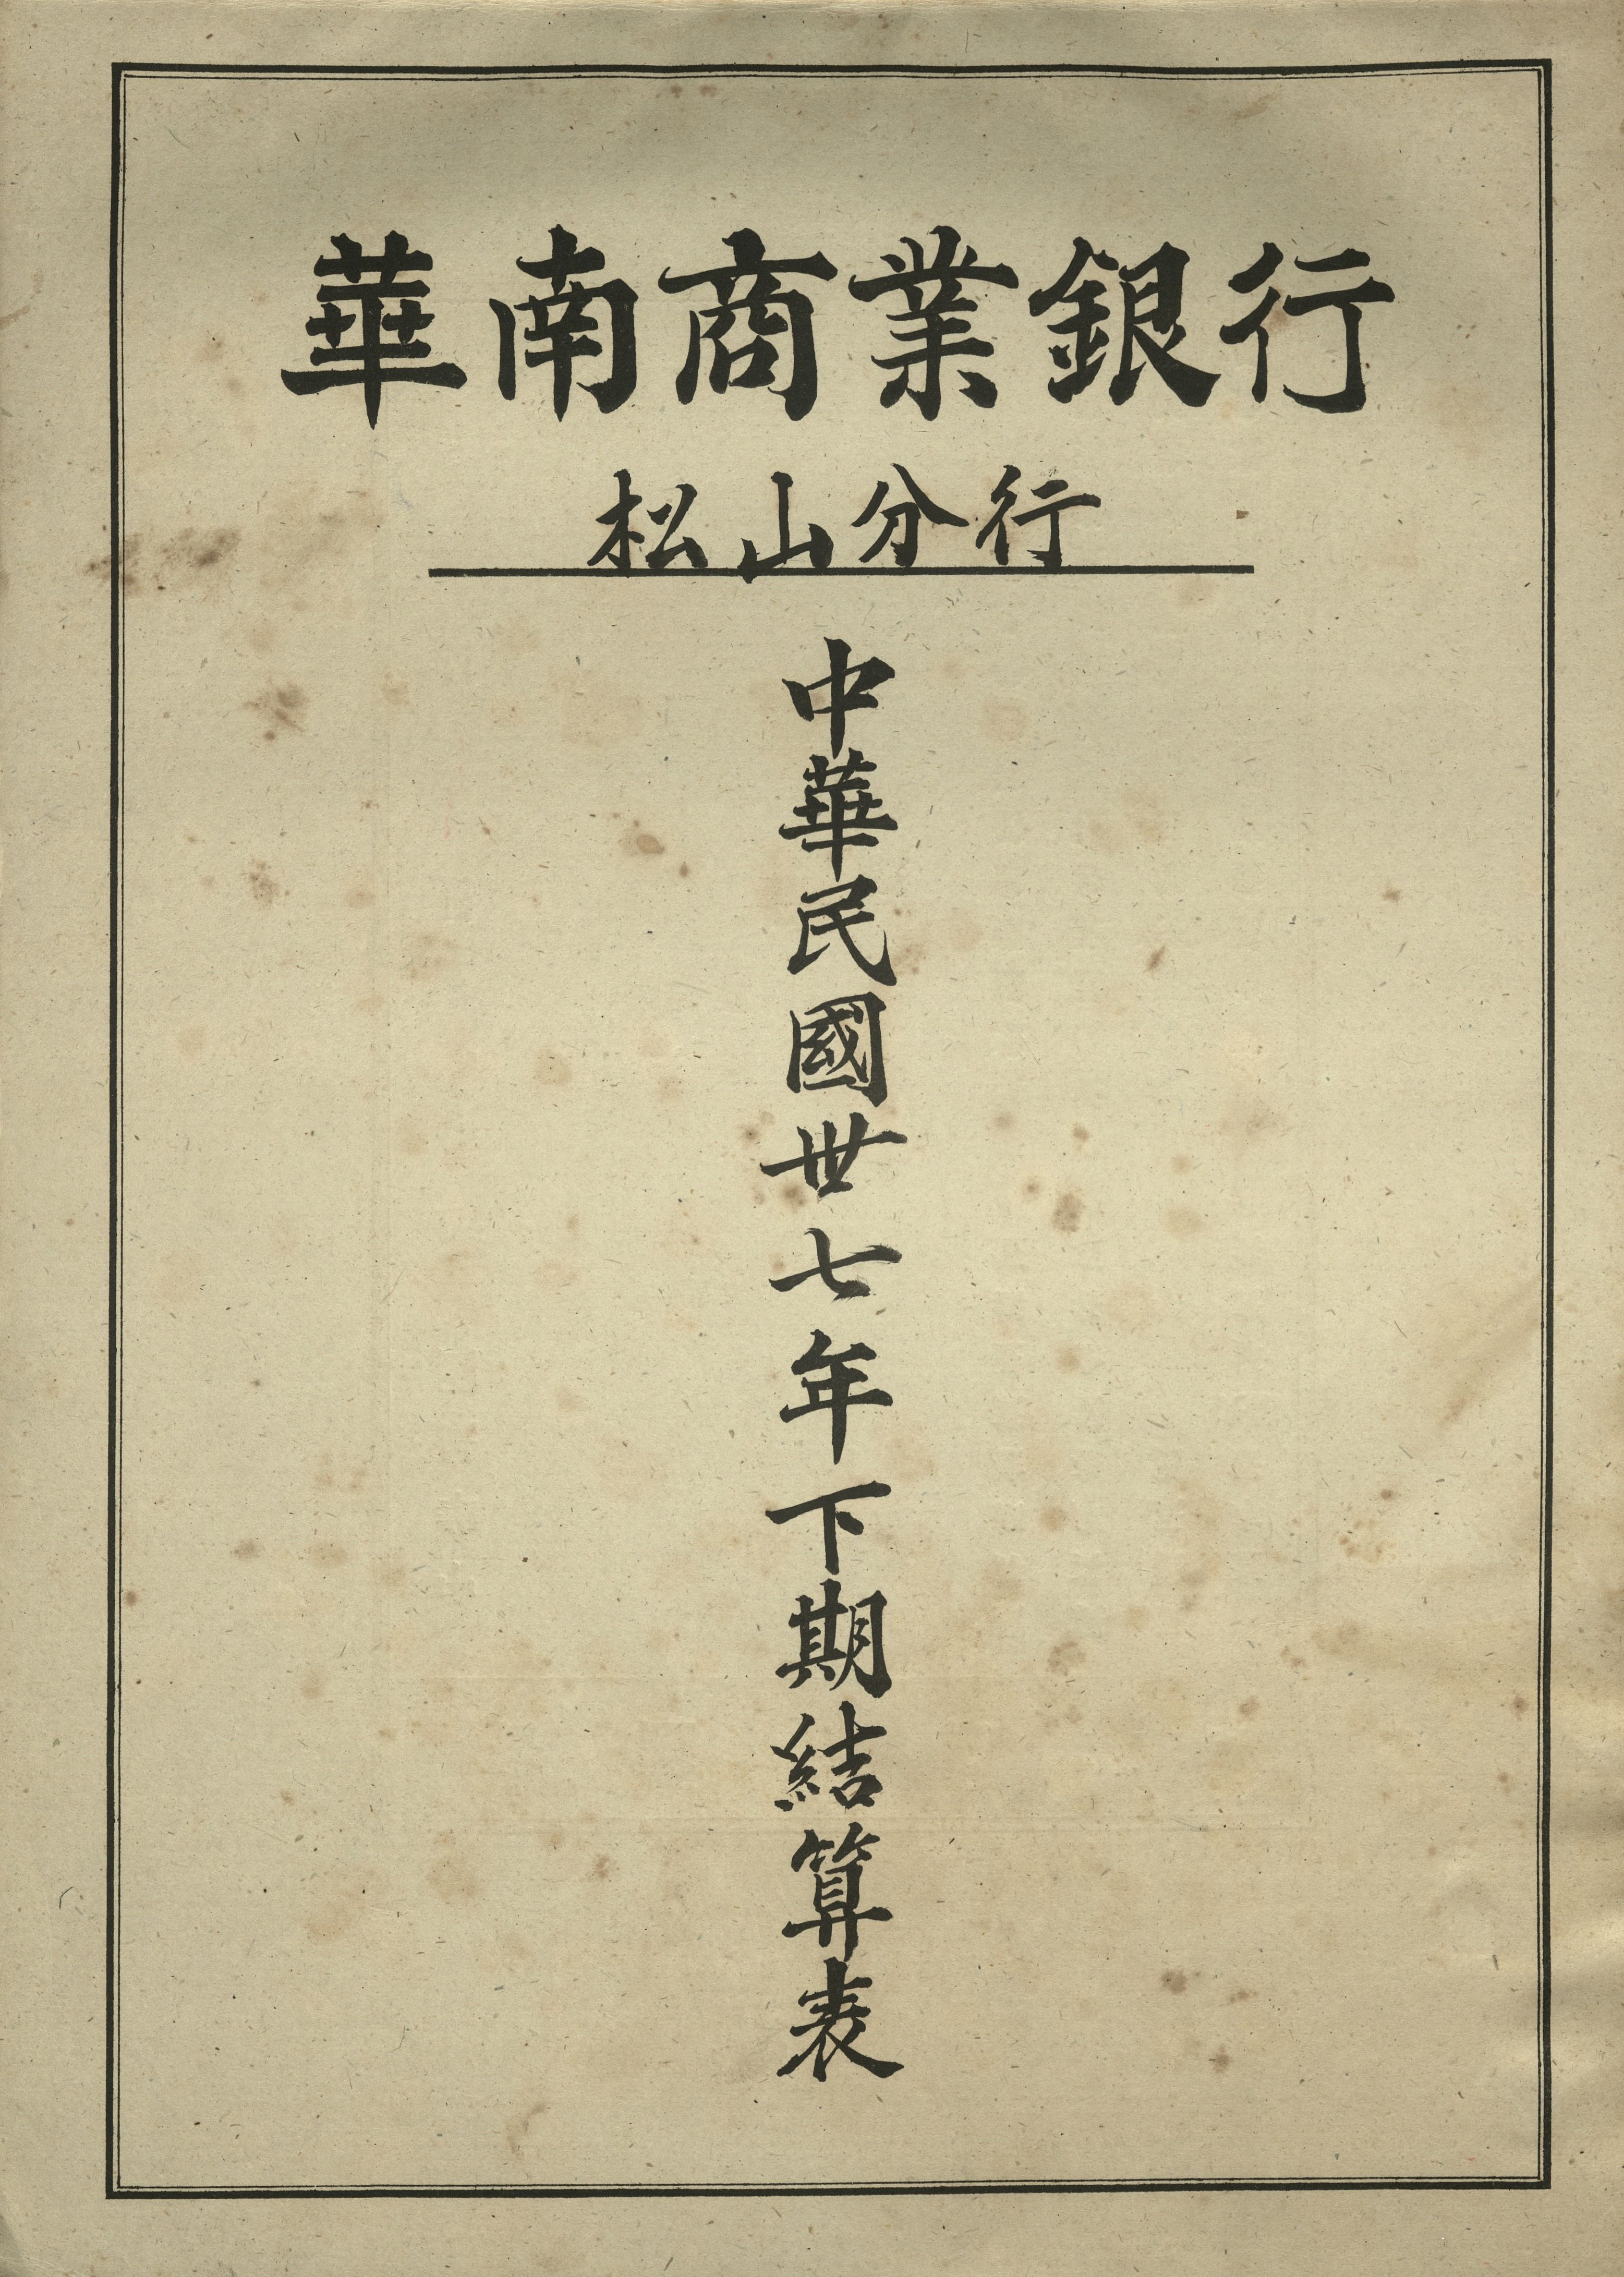 華南商業銀行
松山分行
中華民國丗七年下期結算表